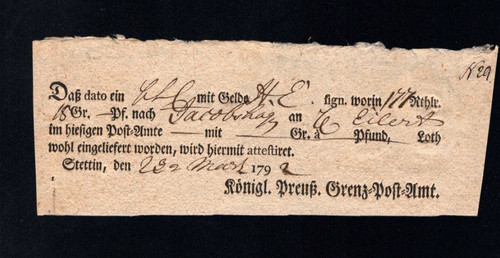 No 29
Daß dato ein mit Gelde H. E. sign. worin 177 Rthlr.
18 Gr. — Pf. nach Jacobshag an Eilert
im hiesigen Post-Amte — mit — Gr. à Pfund, Loth
wohl eingeliefert worden, wird hiermit attestiret.
Stettin, den 2 Mart 1792
Königl. Preuß. Grenz-Post-Amt.